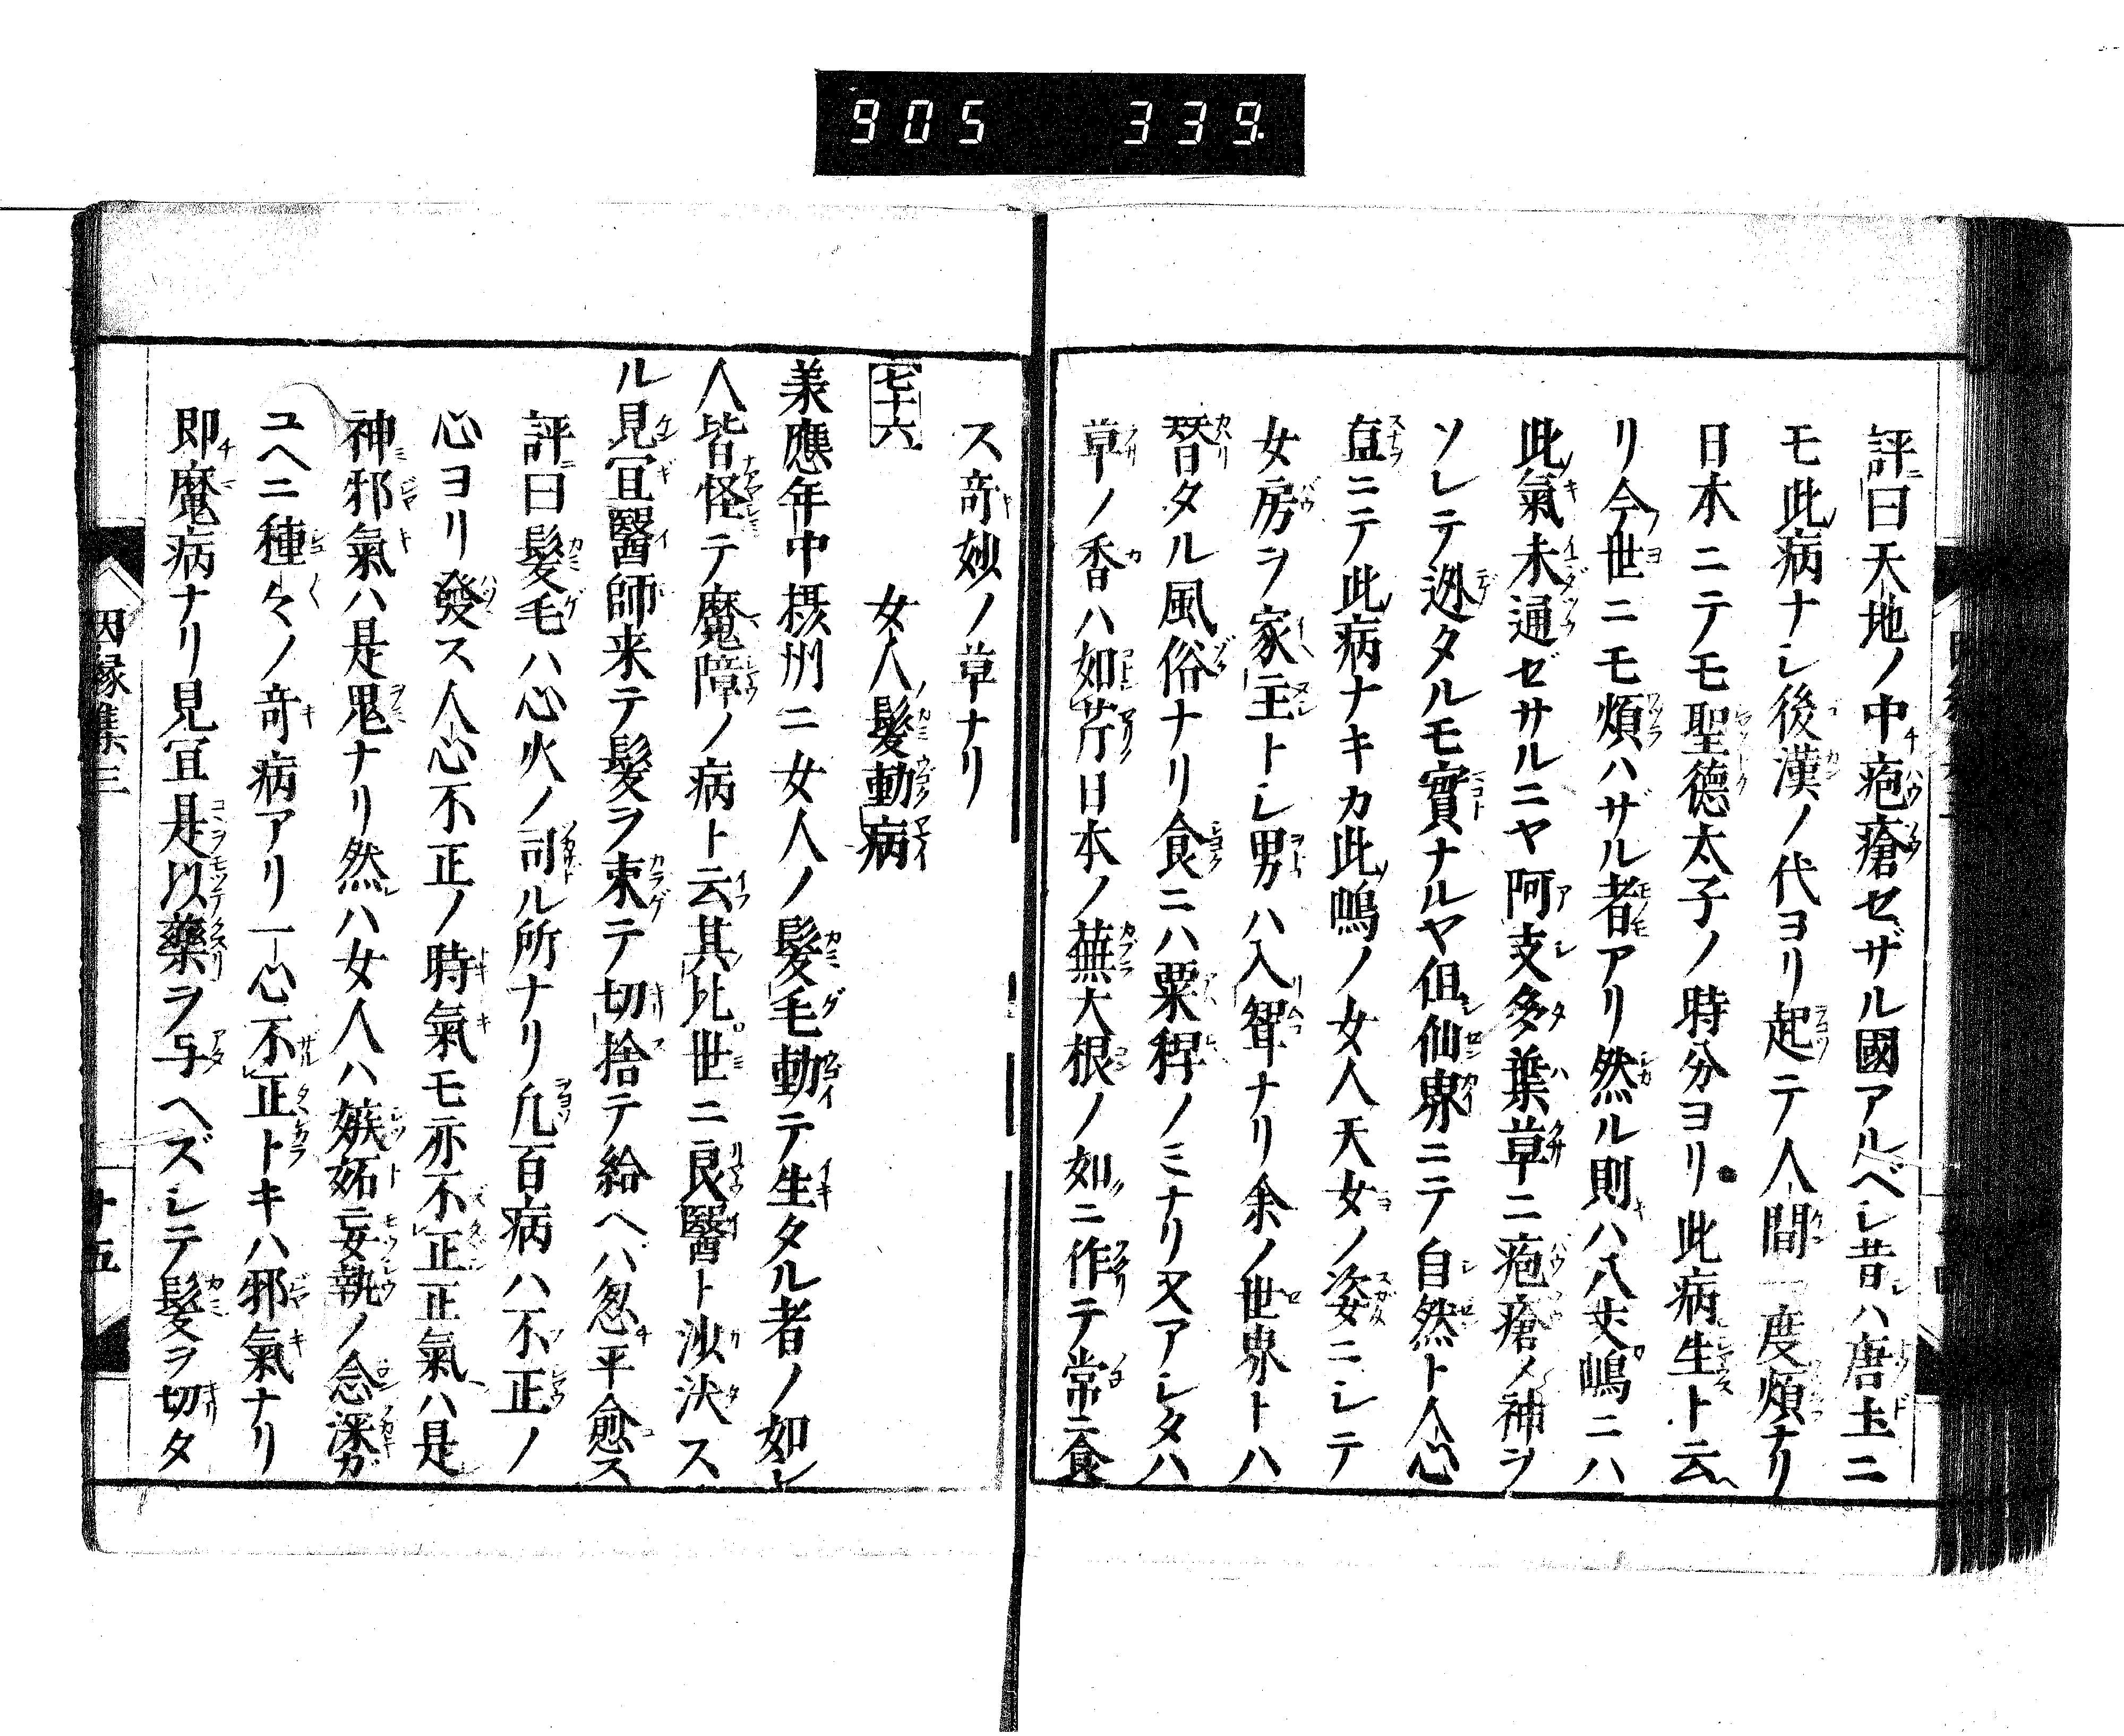 905 339.
評曰天地ノ中疱瘡セザル國アルベシ昔ハ唐土ニ
モ此病ナシ後漢ノ代ヨリ起テ人間一度煩ナリ
日本ニテモ聖德太子ノ時分ヨリ此病生ト云
リ今世ニモ煩ハザル者アリ然ル則ハ八丈嶋ニハ
此氣未通ゼサルニヤ阿支多葉草ニ疱瘡ノ神ヲ
ソレテ迯タルモ實ナルヤ但仙界ニテ自然ト人心
直ニテ此病ナキカ此嶋ノ女人天女ノ姿ニシテ
女房ヲ家主トシ男ハ入聟ナリ余ノ世界トハ
替タル風俗ナリ食ニハ粟稗ノミナリ又アシタハ
草ノ香ハ如芹日本ノ蕪大根ノ如ニ作テ常ニ食
ス奇妙ノ草ナリ
七十六 女人髮動病
美應年中摂州ニ女人ノ髮毛動テ生タル者ノ如シ
人皆怪テ魔障ノ病ト云其比世ニ良醫ト沙汰ス
ル見宜醫師来テ髮ヲ束テ切捨テ給ヘバ忽平愈ス
評曰髮毛ハ心火ノ司ル所ナリ凡百病ハ不正ノ
心ヨリ發ス人心不正ノ時氣モ亦不正正氣ハ是
神邪氣ハ是鬼ナリ然ハ女人ハ嫉妬妄執ノ念深カ
ユヘニ種々ノ奇病アリ一心不正トキハ邪氣ナリ
即魔病ナリ見宜是以藥ヲ与ヘズシテ髮ヲ切タ
因縁集三
十五